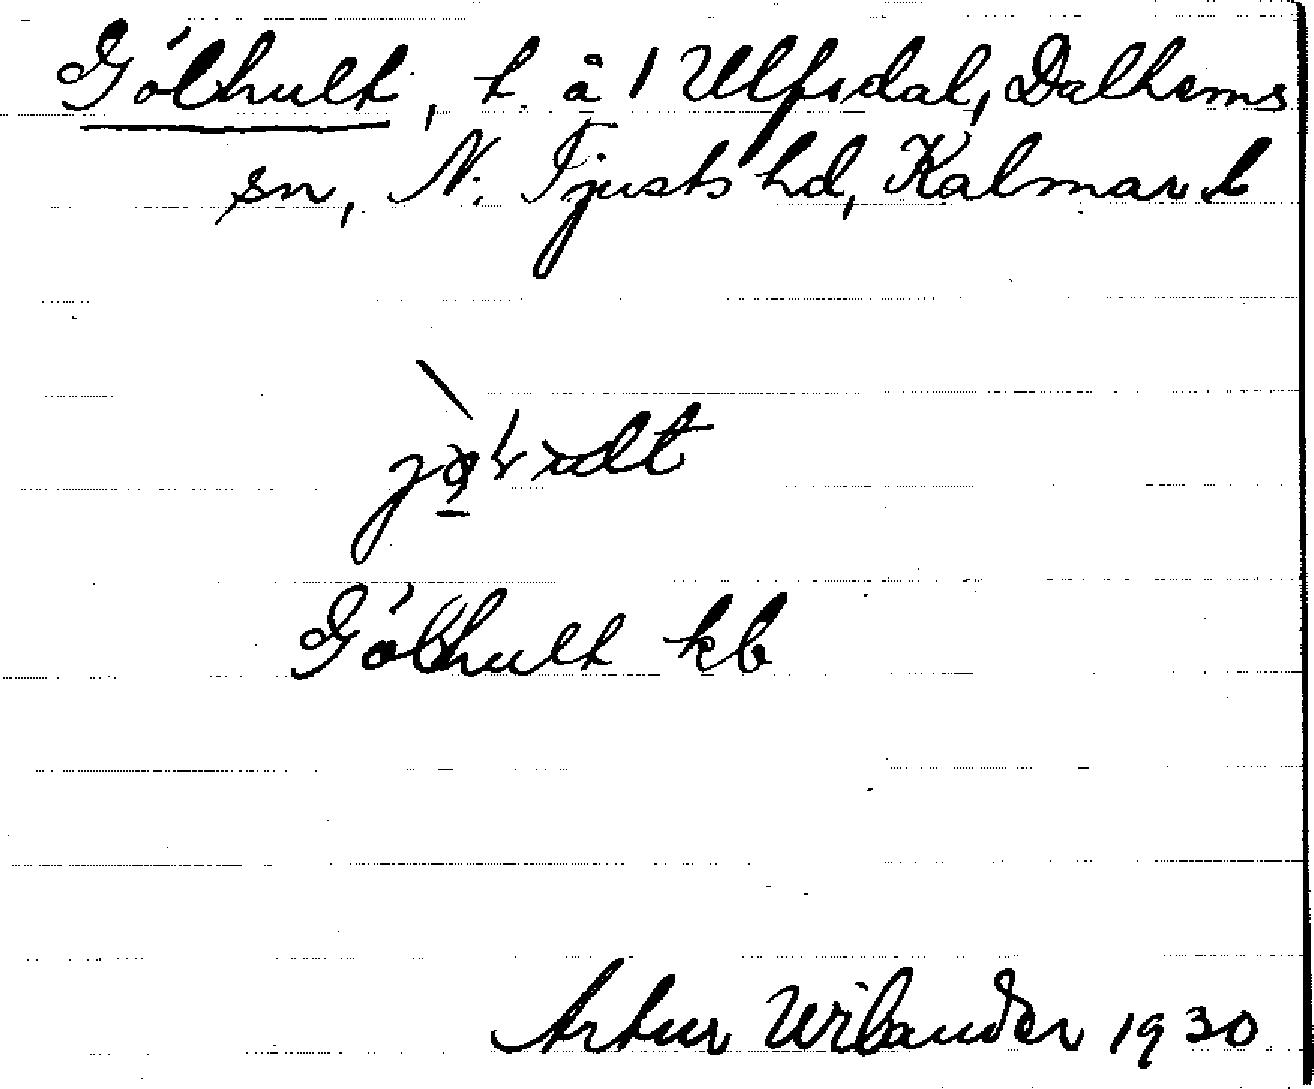 Gölhult, t. å 1 Ulfsdal, Dalhems
sn, N. Tjusts hd, Kalmar l
Gölhult kb
Artur Wilander 1930